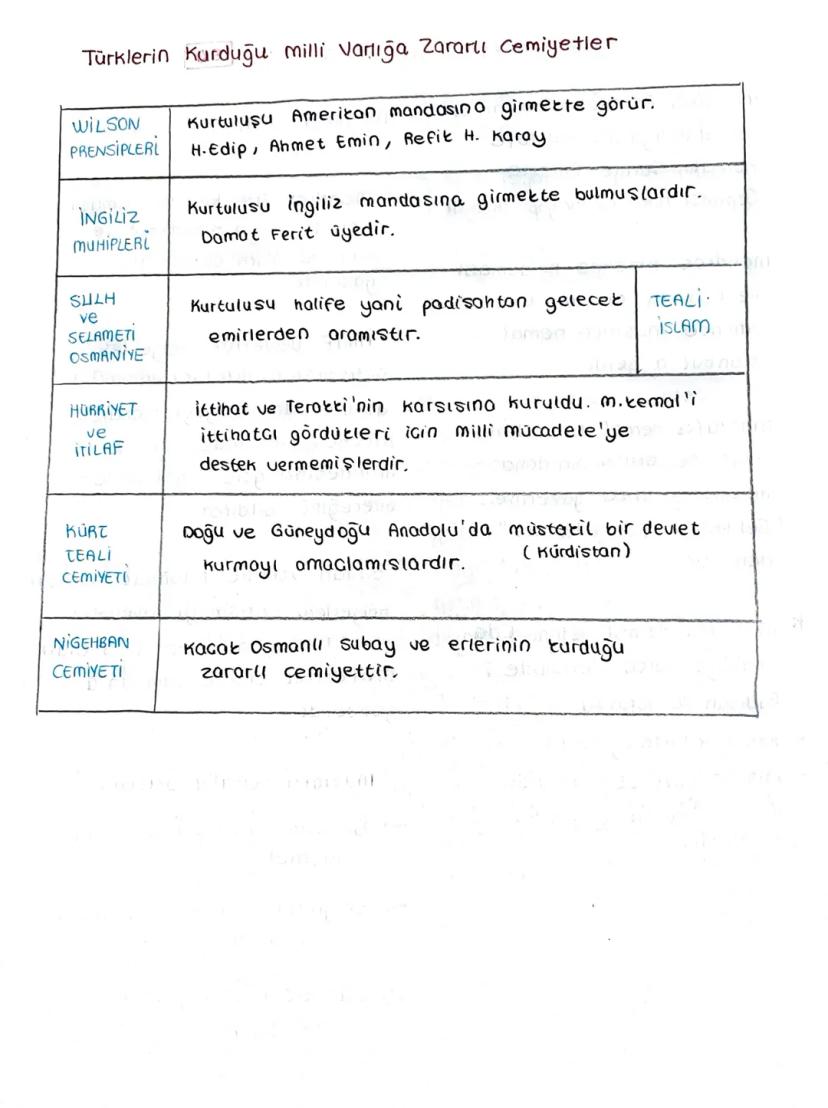 Türklerin Kurduğu Milli Varlığa Zararlı Cemiyetler
WİLSON
PRENSİPLERİ
Kurtuluşu Amerikan mandasına girmekte görür.
H.Edip, Ahmet Emin, Refik H. Karay
İNGİLİZ
MUHİPLERİ
Kurtulusu ingiliz mandasına girmekte bulmuşlardır.
Damat Ferit üyedir.
SULH
ve
SELAMETİ
OSMANİYE
Kurtulusu halife yani padisahtan gelecek
emirlerden aramıstır.
TEALİ
İSLAM
HÜRRİYET
ve
İTİLAF
ittihat ve Terakki'nin karsısına kuruldu. M.Kemal'i
ittihatcı gördükleri icin milli mücadele'ye
destek vermemişlerdir.
KÜRT
TEALİ
CEMİYETİ
Doğu ve Güneydoğu Anadolu'da müstakil bir devlet
kurmayı amaclamıslardır. (Kürdistan)
NİGEHBAN
CEMİYETİ
Kacak Osmanlı subay ve erlerinin kurduğu
zararlı cemiyettir.